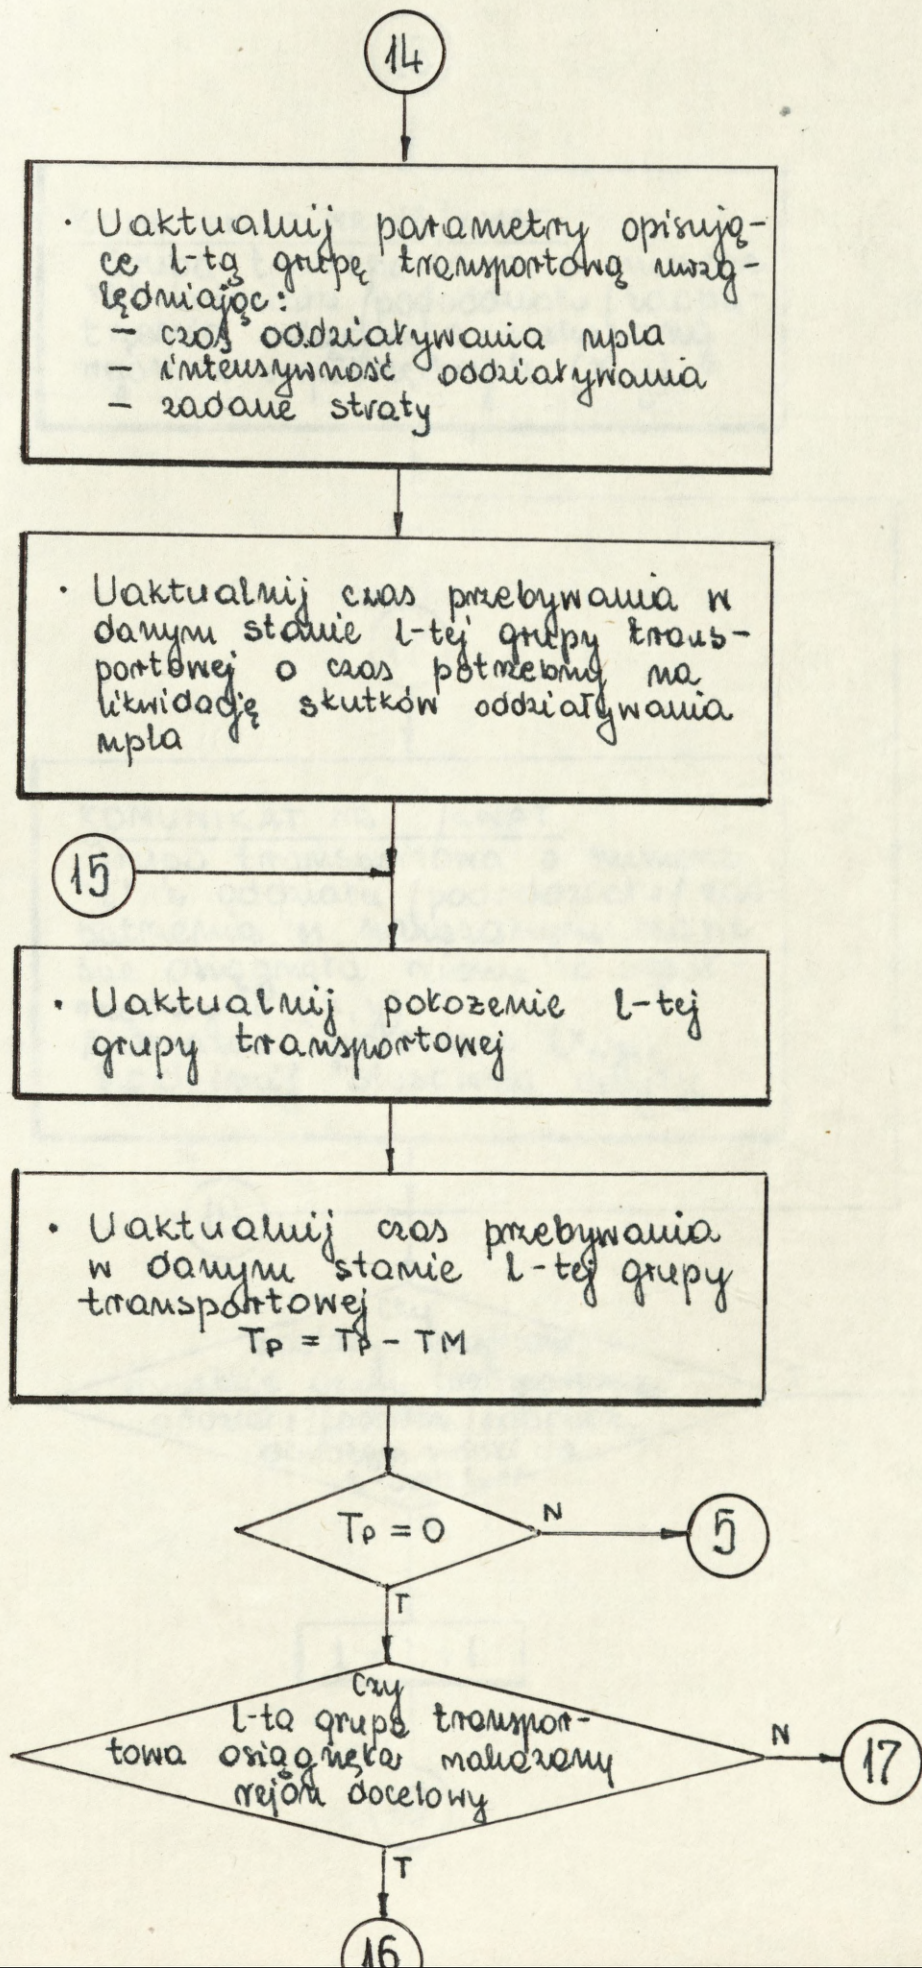 14
· Uaktualnij parametry opisują-
ce l-tą grupę transportową uwzg-
lędniając:
– czas oddziaływania npla
– intensywność oddziaływania
– zadane straty
· Uaktualnij czas przebywania w
danym stanie l-tej grupy trans-
portowej o czas potrzebny na
likwidację skutków oddziaływania
npla
15
· Uaktualnij położenie l-tej
grupy transportowej
· Uaktualnij czas przebywania
w danym stanie l-tej grupy
transportowej
Tp = Tp – TM
Tp = 0
N
5
T
czy
l-ta grupa transpor-
towa osiągnęła nakazany
rejon docelowy
N
17
T
16